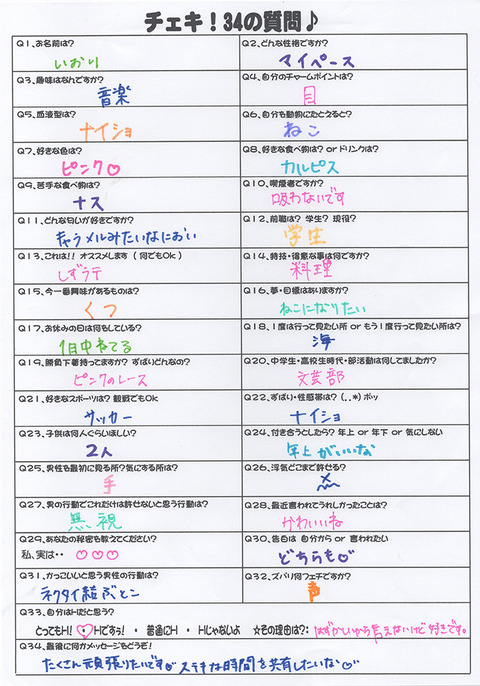 チェキ！34の質問♪
Q1、お名前は？
いおり
Q2、どんな性格ですか？
マイペース
Q3、趣味はなんですか？
音楽
Q4、自分のチャームポイントは？
目
Q5、血液型は？
ナイショ
Q6、自分を動物にたとえると？
ねこ
Q7、好きな色は？
ピンク♡
Q8、好きな食べ物は？ or ドリンクは？
カルピス
Q9、苦手な食べ物は？
ナス
Q10、喫煙者ですか？
吸わないです
Q11、どんな匂いが好きですか？
キャラメルみたいなにおい
Q12、前職は？ 学生？ 現役？
学生
Q13、これは！！ オススメします （何でもOk）
Q14、特技・得意な事は何ですか？
料理
Q15、今一番興味があるものは？
くつ
Q16、夢・目標はありますか？
ねこになりたい
Q17、お休みの日は何をしている？
1日中ねてる
Q18、1度は行って見たい所 or もう1度行って見たい所？
海
Q19、勝負下着持ってますか？ ずばりどんなの？
ピンクのレース
Q20、中学生・高校生時代・部活動は何してましたか？
文芸部
Q21、好きなスポーツは？ 観戦でもOK
サッカー
Q22、ずばり・性感帯は？（．．*）ポッ
ナイショ
Q23、子供は何人ぐらいほしい？
2人
Q24、付き合うとしたら？ 年上 or 年下 or 気にしない
年上がいいな
Q25、男性を最初に見る所？気にする所は？
手
Q26、浮気どこまで許せる？
Q27、男の行動でこれだけは許せないと思う行動は？
無視
Q28、最近言われてうれしかったことは？
かわいいね
Q29、あなたの秘密を教えてください？
私、実は・・ ♡♡♡
Q30、告白は 自分から or 言われたい
どちらも♡
Q31、かっこいいと思う男性の行動は？
ネクタイ結ぶとこ
Q32、ズバリ何フェチですか？
声
Q33、自分はHだと思う？
とってもH！ ・ Hですぅ！ ・ 普通にH ・ Hじゃないよ ☆その理由は？： はずかしいから言えないけど好きです。
Q34、最後に何かメッセージをどうぞ！
たくさん頑張りたいです♡ ステキな時間を共有したいな♡